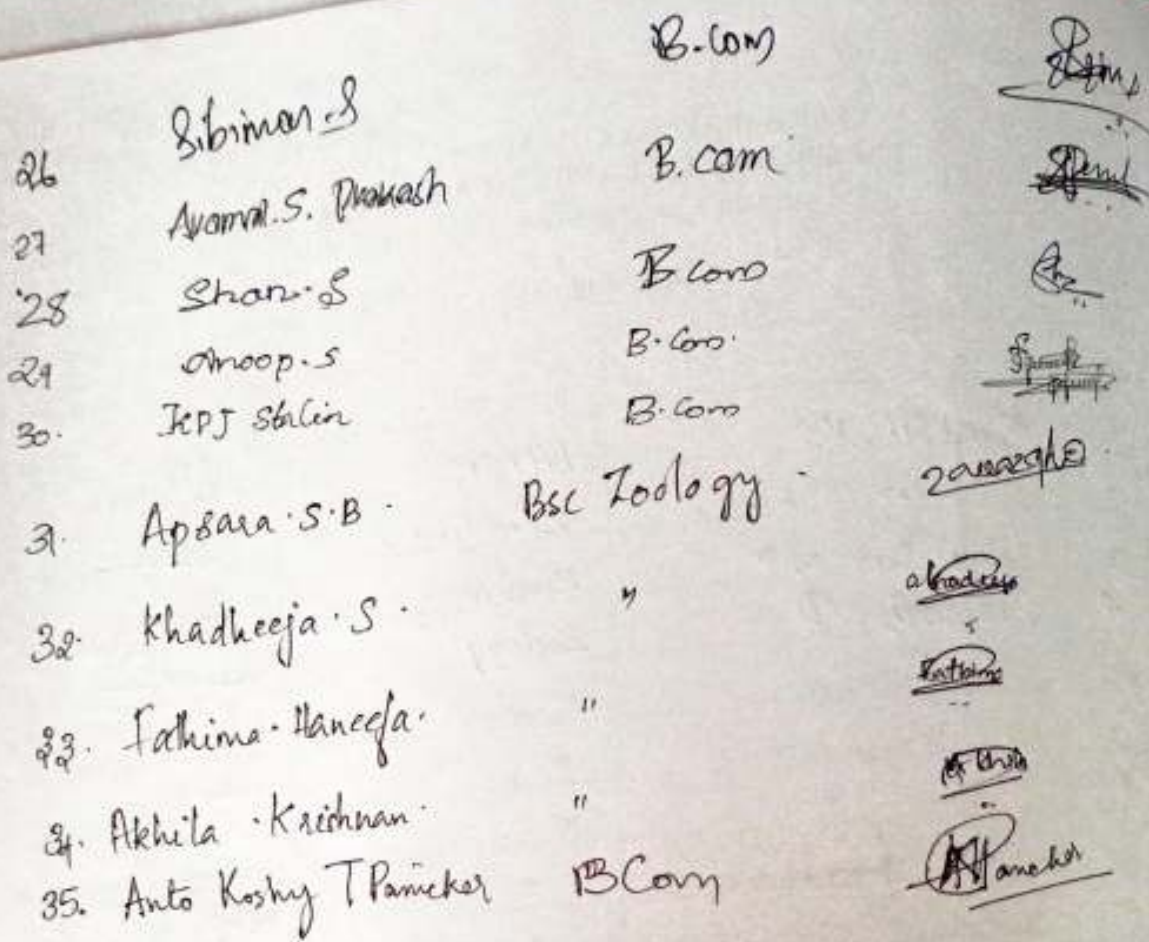 26 Sibimon.S B.Com
27 S. Prakash B.com
28 Shan.S B com
29 Anoop.S B.Com.
30. Stalin B.Com
31. Apsara.S.B. Bsc Zoology
32. Khadheeja.S. "
33. Fathima.Haneefa. " Fathima
34. Akhila.Krishnan. "
35. Anto Koshy T Panicker BCom